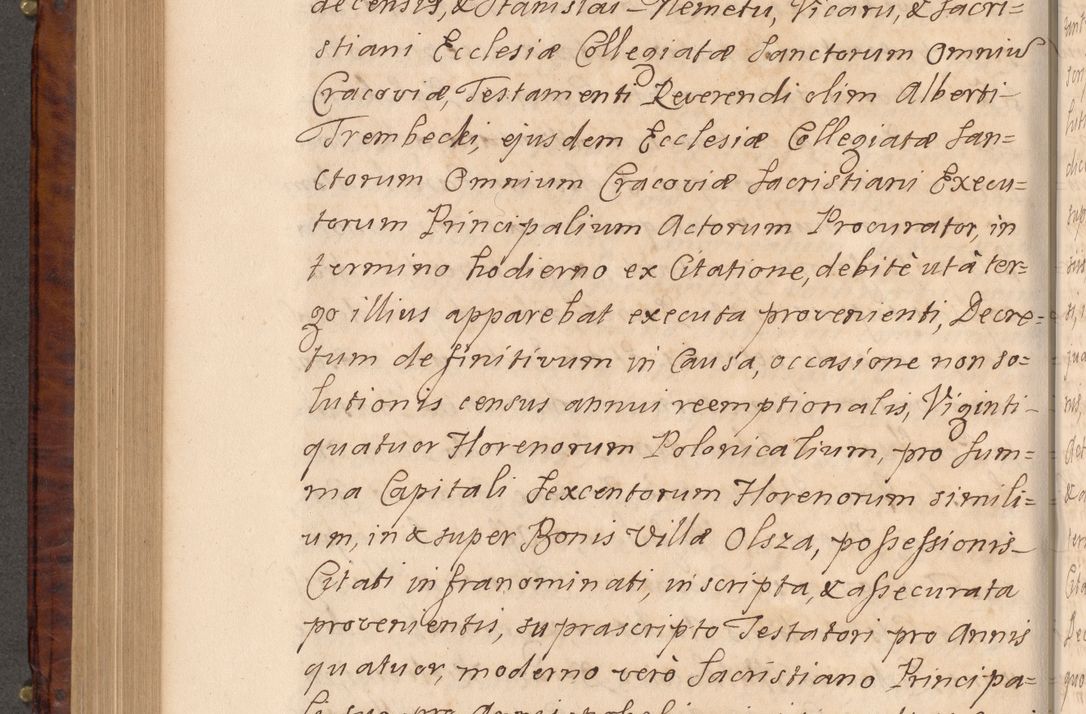 decensis, & Stanislai Nemetij, Vicarij, & Sacri=
stiani Ecclesiæ Collegiatæ Sanctorum Omniũ
Cracoviæ, Testamenti Reverendi olim Alberti
Trembecki, ejusdem Ecclesiæ Collegiatæ San=
ctorum Omnium Cracoviæ Sacristiani Execu=
torum Principalium Actorum Procurator, in
termino hodierno ex Citatione, debitè ut à ter=
go illius apparebat executa provenienti, Decre=
tum definitivum in Causa, occasione non so=
lutionis census annui reemptionalis, Viginti
quatuor Florenorum Polonicalium, pro Sum=
ma Capitali Sexcentorum Florenorum simili=
um, in & super Bonis Villæ Olsza, possessionis
Citati infranominati, inscripta, & assecurata
provenientis, suprascripto Testatori pro Annis
quatuor, moderno verò Sacristiano Principa=